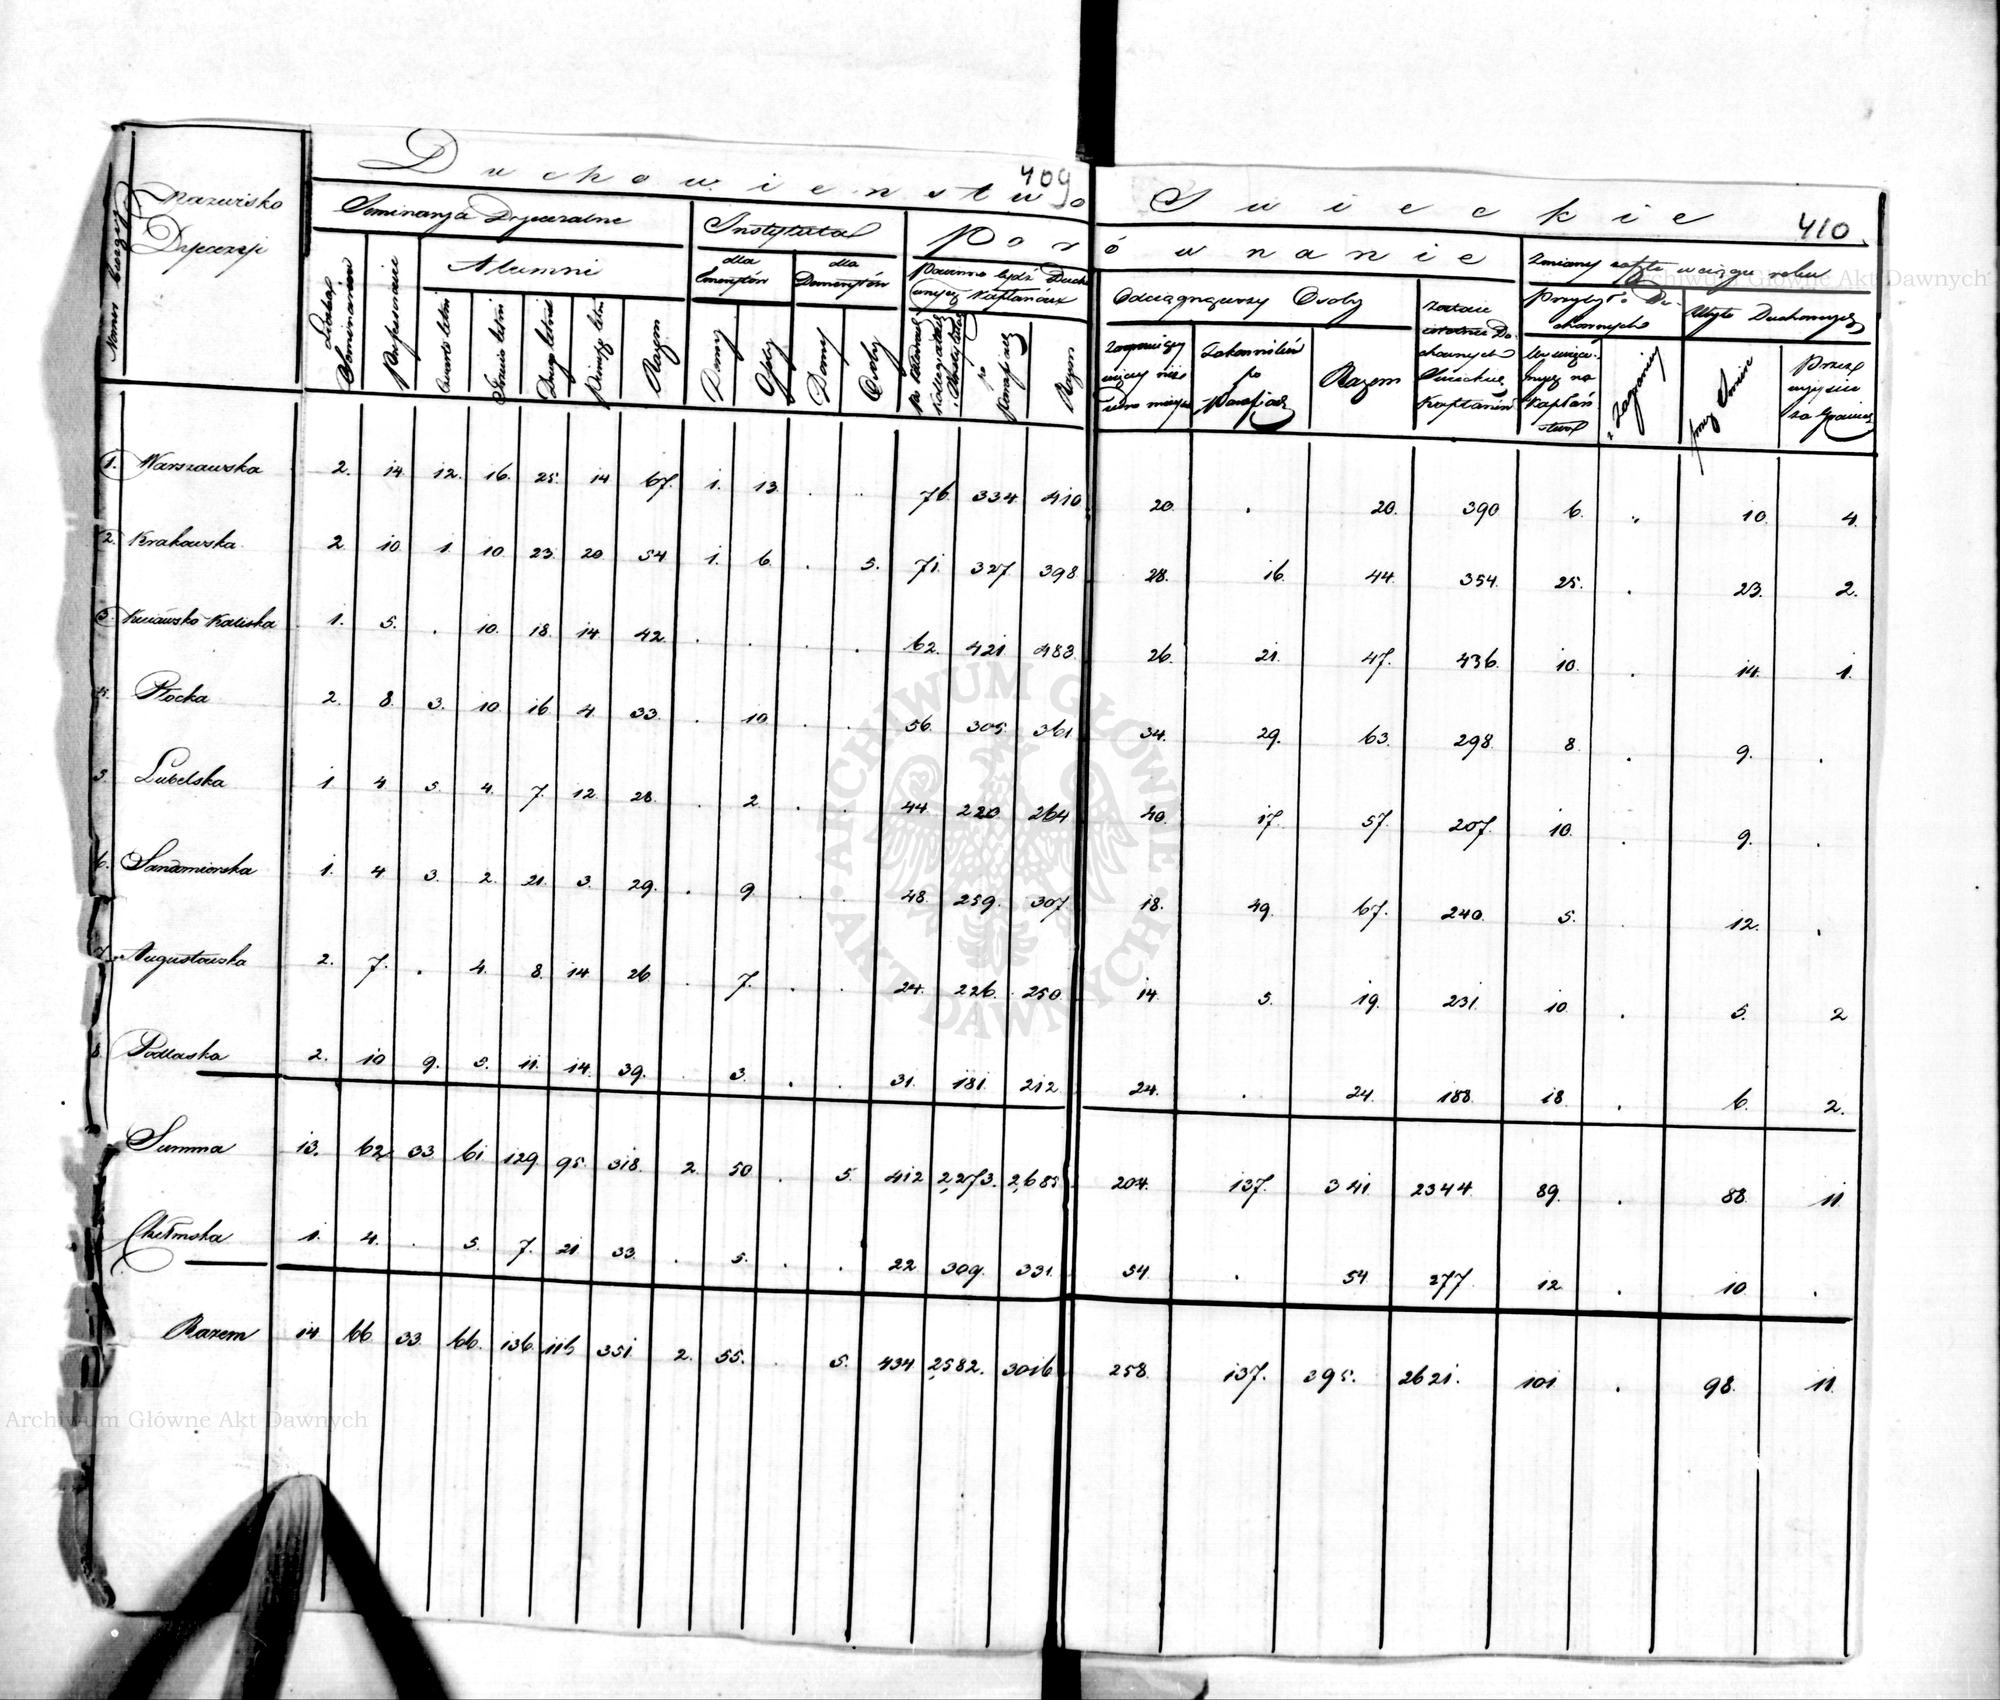 409
410
Duchowieństwo Swieckie
Numer bieżący
Nazwisko Dyecezji
Seminarja Dyecezalne
Instytuta
Porównanie
Zmiany zaszłe w ciągu roku
Alumni
dla Emerytów
dla Demerytów
Powinno bydź Duchownych Kapłanów
Odciągnąwszy Osoby
Przybyło Duchownych
Ubyło Duchownych
Liczba Seminariów
Professorowie
Czwarto letni
Trzecio letni
Drugo letni
Pierwszo letni
Razem
Domy
Osoby
Domy
Osoby
po Parafiach
Razem
Zakonników po Parafiach
Razem
Zostaje Duchownych Swieckich Kapłanów
z Zagranicy
przez Smierć
Przez wyjście za Granicę
1. Warszawska 2. 14 12. 16. 25. 14 67. 1. 13. . .. 76. 334. 410 20. . 20. 390 6. „ 10. 4.
2. Krakowska 2 10. 1. 10. 23. 20 54 1. 6. . 5. 71. 327. 398. 28. 16. 44. 354. 25. . 23. 2.
3. Kujawsko Kaliska 1. 5. . 10. 18. 14. 42. . . . . 62. 421 483. 26. 21. 47. 436. 10. . 14. 1.
4. Płocka 2. 8. 3. 10. 16 4. 33. . 10. . . 56. 305. 361. 34. 29. 63. 298. 8. . 9. .
5. Lubelska 1 4 5. 4. 7. 12. 28. . 2. . . 44. 220. 264 40. 17. 57. 207. 10. . 9. .
6. Sandomierska 1. 4 3. 2. 21. 3. 29. . 9. . . 48. 259. 307. 18. 49. 67. 240. 5. . 12. .
7. Augustowska 2. 7. . 4. 8. 14 26 . 7. . . 24. 226. 250. 14. 5. 19. 231. 10. . 5. 2
8. Podlaska 2. 10 9. 5. 11. 14. 39. . 3. . . 31. 181. 212. 24. . 24. 188. 18. . 6. 2.
Summa 13. 62. 33 61 129. 95. 318. 2. 50 . 5. 412 2,273. 2,685. 204. 137. 341. 2344. 89. . 88. 11.
Chełmska 1. 4. . 5. 7. 21. 33. . 5. . . 22 309. 331. 54. . 54 277. 12. . 10. .
Razem 14. 66 33. 66. 136. 116 351. 2. 55. . 5. 434 2,582. 3016 258. 137. 395. 2621. 101 . 98. 11.
Archiwum Główne Akt Dawnych
Archiwum Główne Akt Dawnych
ARCHIWUM GŁÓWNE • AKT DAWNYCH •